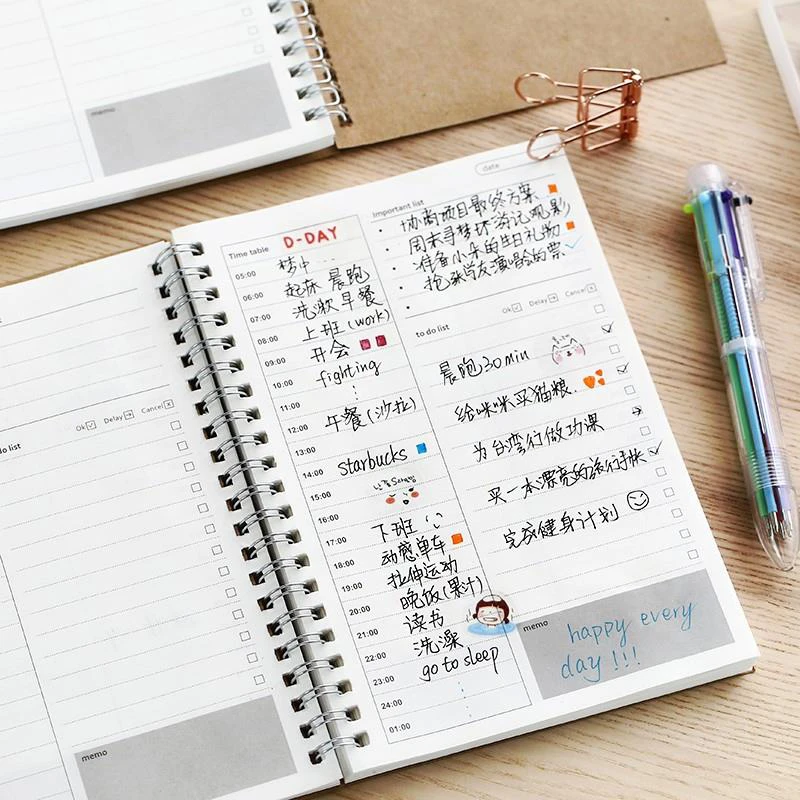 memo
do list
Ok Delay Cancel
memo
Time table D-DAY
05:00
梦中...
06:00
起床 晨跑
07:00
洗漱 早餐
08:00
上班 (work)
09:00
开会
10:00
fighting
11:00
12:00
午餐 (沙拉)
13:00
14:00
starbucks
15:00
16:00
17:00
下班
18:00
动感单车
19:00
拉伸运动
20:00
晚饭 (果汁)
21:00
读书
22:00
洗澡
23:00
go to sleep
24:00
01:00
date
Important list
· 协商项目最终方案
· 周末寻梦环游记观影
· 准备小朵的生日礼物
· 抢张学友演唱会的票
Ok Delay Cancel
to do list
晨跑30min
给咪咪买猫粮.
为台湾行做功课
买一本漂亮的旅行手帐
完成健身计划
memo
happy every
day!!!